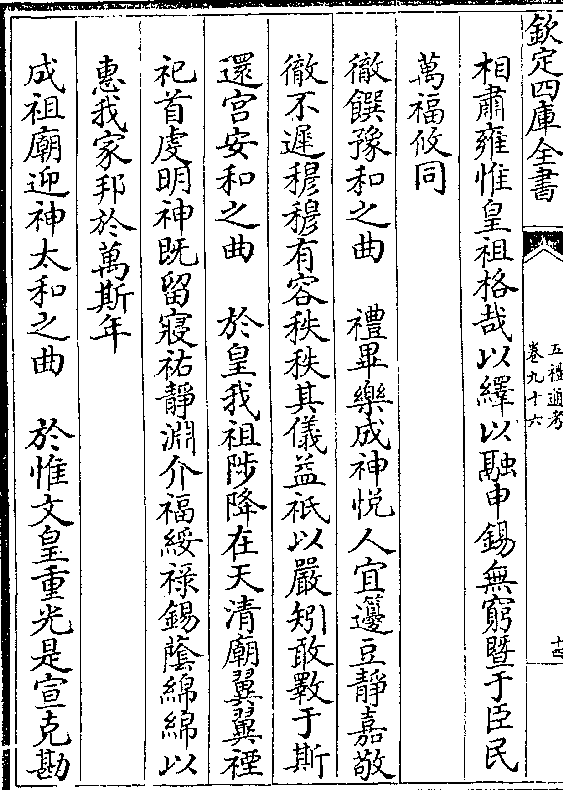 欽定四庫全書
五禮通考
卷九十六
十四
相肅雍惟皇祖格哉以繹以融申錫無窮暨于臣民
萬福攸同
徹饌豫和之曲　禮畢樂成神悦人宜籩豆靜嘉敬
徹不遲穆穆有容秩秩其儀益祇以嚴矧敢斁于斯
還宫安和之曲　於皇我祖陟降在天清廟翼翼禋
祀首虔明神既留寢祐靜淵介福綏禄錫蔭綿綿以
惠我家邦於萬斯年
成祖廟迎神太和之曲　於惟文皇重光是宣克勘